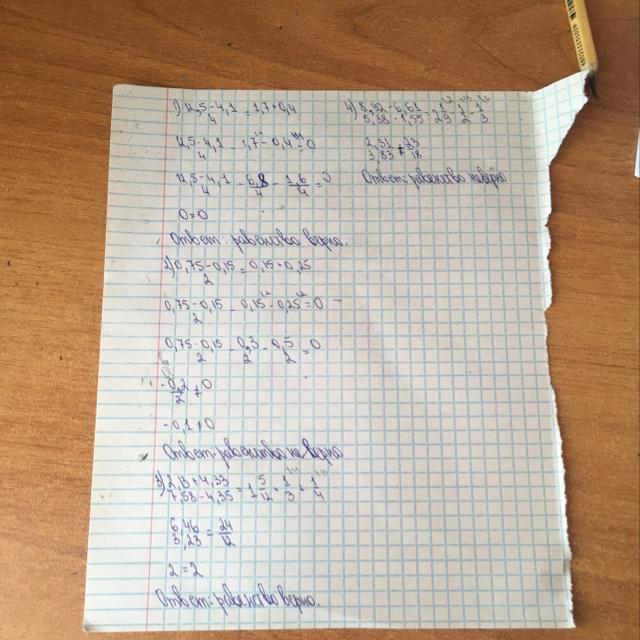 1) 12,5-4,1/4 = 1,7+0,4
12,5-4,1/4 - 1,7 - 0,4 = 0
12,5-4,1/4 - 6,8/4 - 1,6/4 = 0
0=0
Ответ: равенство верно.
2) 0,75-0,15/2 = 0,15+0,25
0,75-0,15/2 - 0,15 - 0,25 = 0
0,75-0,15/2 - 0,3/2 - 0,5/2 = 0
-0,2/2 ≠ 0
-0,1 ≠ 0
Ответ: равенство не верно
3) 2,13+4,33/7,58-4,35 = 1 5/12 + 1/3 + 1/4
6,46/3,23 = 24/12
2=2
Ответ: равенство верно.
4) 8,92-6,61/5,38-1,55 = 1/29 1/2 1/3
2,31/3,83 ≠ 23/18
Ответ: равенство неверно